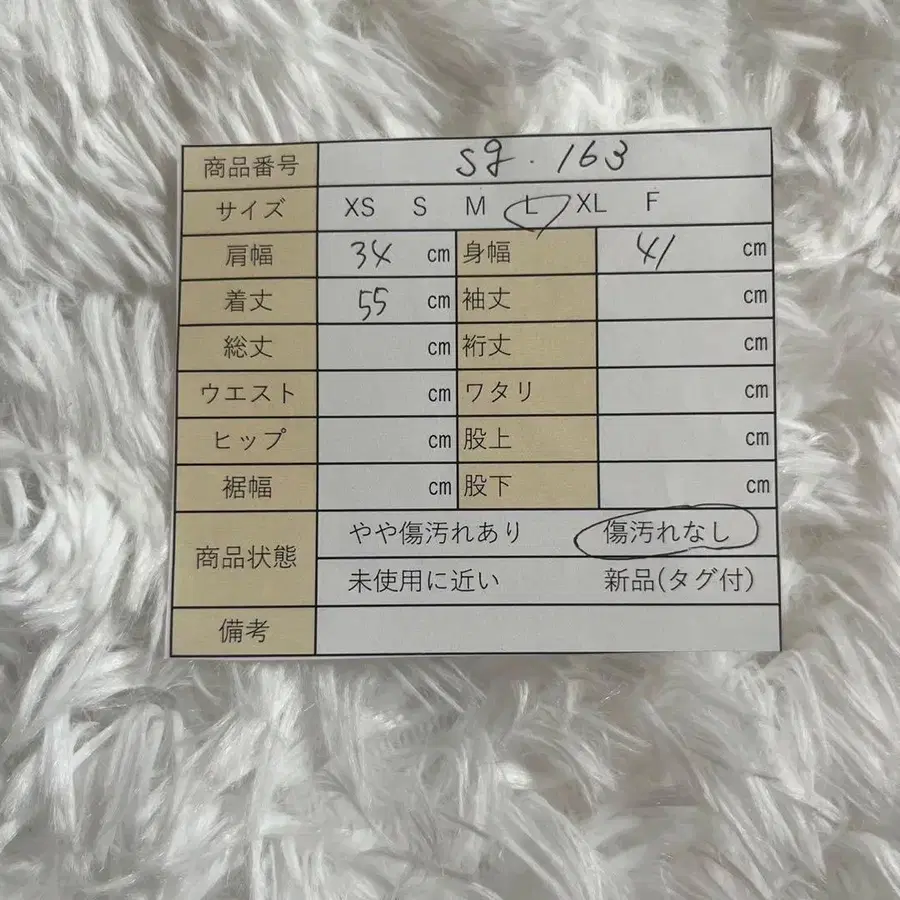 商品番号 sg.163
サイズ XS S M L XL F
肩幅 34 cm 身幅 41 cm
着丈 55 cm 袖丈 cm
総丈 cm 裄丈 cm
ウエスト cm ワタリ cm
ヒップ cm 股上 cm
裾幅 cm 股下 cm
商品状態 やや傷汚れあり 傷汚れなし
未使用に近い 新品(タグ付)
備考